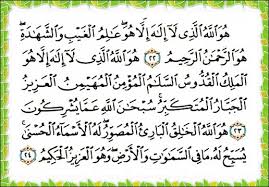 هُوَ اللَّهُ الَّذِي لَا إِلَٰهَ إِلَّا هُوَ عَالِمُ الْغَيْبِ وَالشَّهَادَةِ
هُوَ الرَّحْمَٰنُ الرَّحِيمُ ٢٢ هُوَ اللَّهُ الَّذِي لَا إِلَٰهَ إِلَّا هُوَ
الْمَلِكُ الْقُدُّوسُ السَّلَامُ الْمُؤْمِنُ الْمُهَيْمِنُ الْعَزِيزُ
الْجَبَّارُ الْمُتَكَبِّرُ سُبْحَانَ اللَّهِ عَمَّا يُشْرِكُونَ
٢٣ هُوَ اللَّهُ الْخَالِقُ الْبَارِئُ الْمُصَوِّرُ لَهُ الْأَسْمَاءُ الْحُسْنَىٰ
يُسَبِّحُ لَهُ مَا فِي السَّمَاوَاتِ وَالْأَرْضِ وَهُوَ الْعَزِيزُ الْحَكِيمُ ٢٤